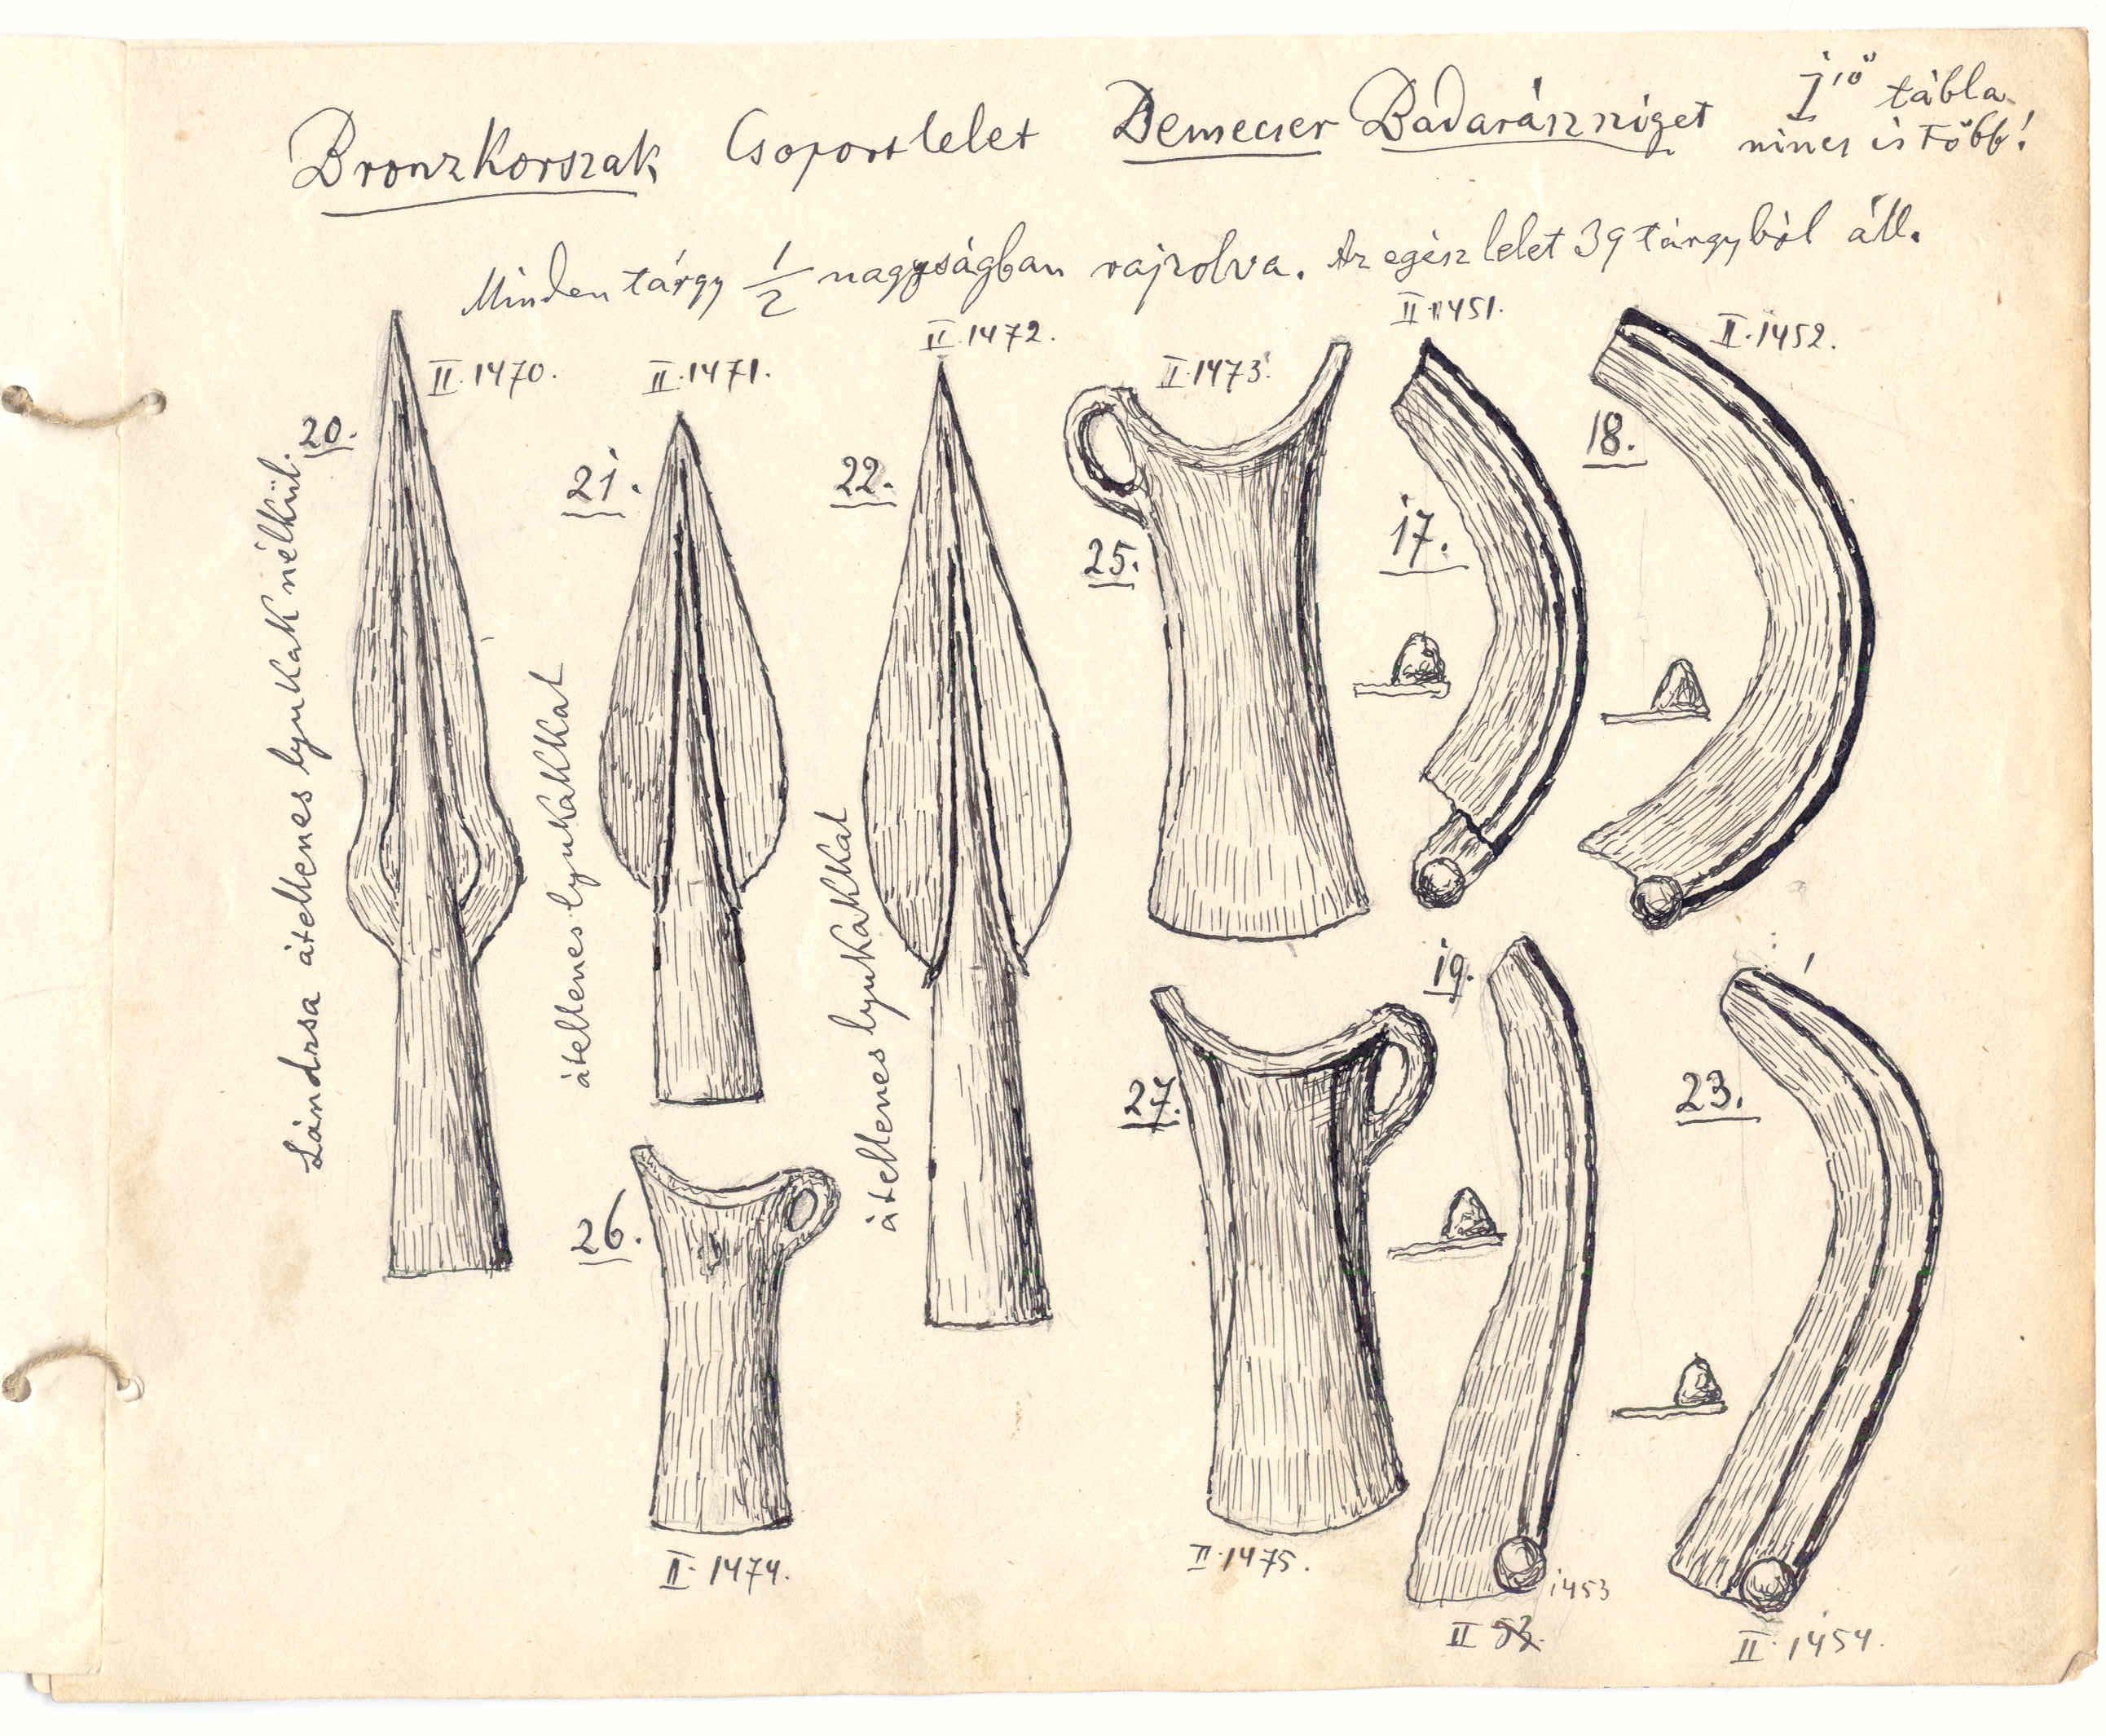 Bronzkorszak Csoportlelet Demecser Badarászsziget I ső tábla
nincs is több!
Minden tárgy 1/2 nagyságban rajzolva. Az egész lelet 39 tárgyból áll.
II.1470.
II.1471.
II.1472.
II.1473.
II.1451.
II.1452.
20.
21.
22.
25.
17.
18.
Lándzsa átellenes lyukak nélkül.
átellenes lyukakkal
átellenes lyukakkal
26.
27.
19.
23.
II.1474.
II.1475.
1453
II
II.1454.